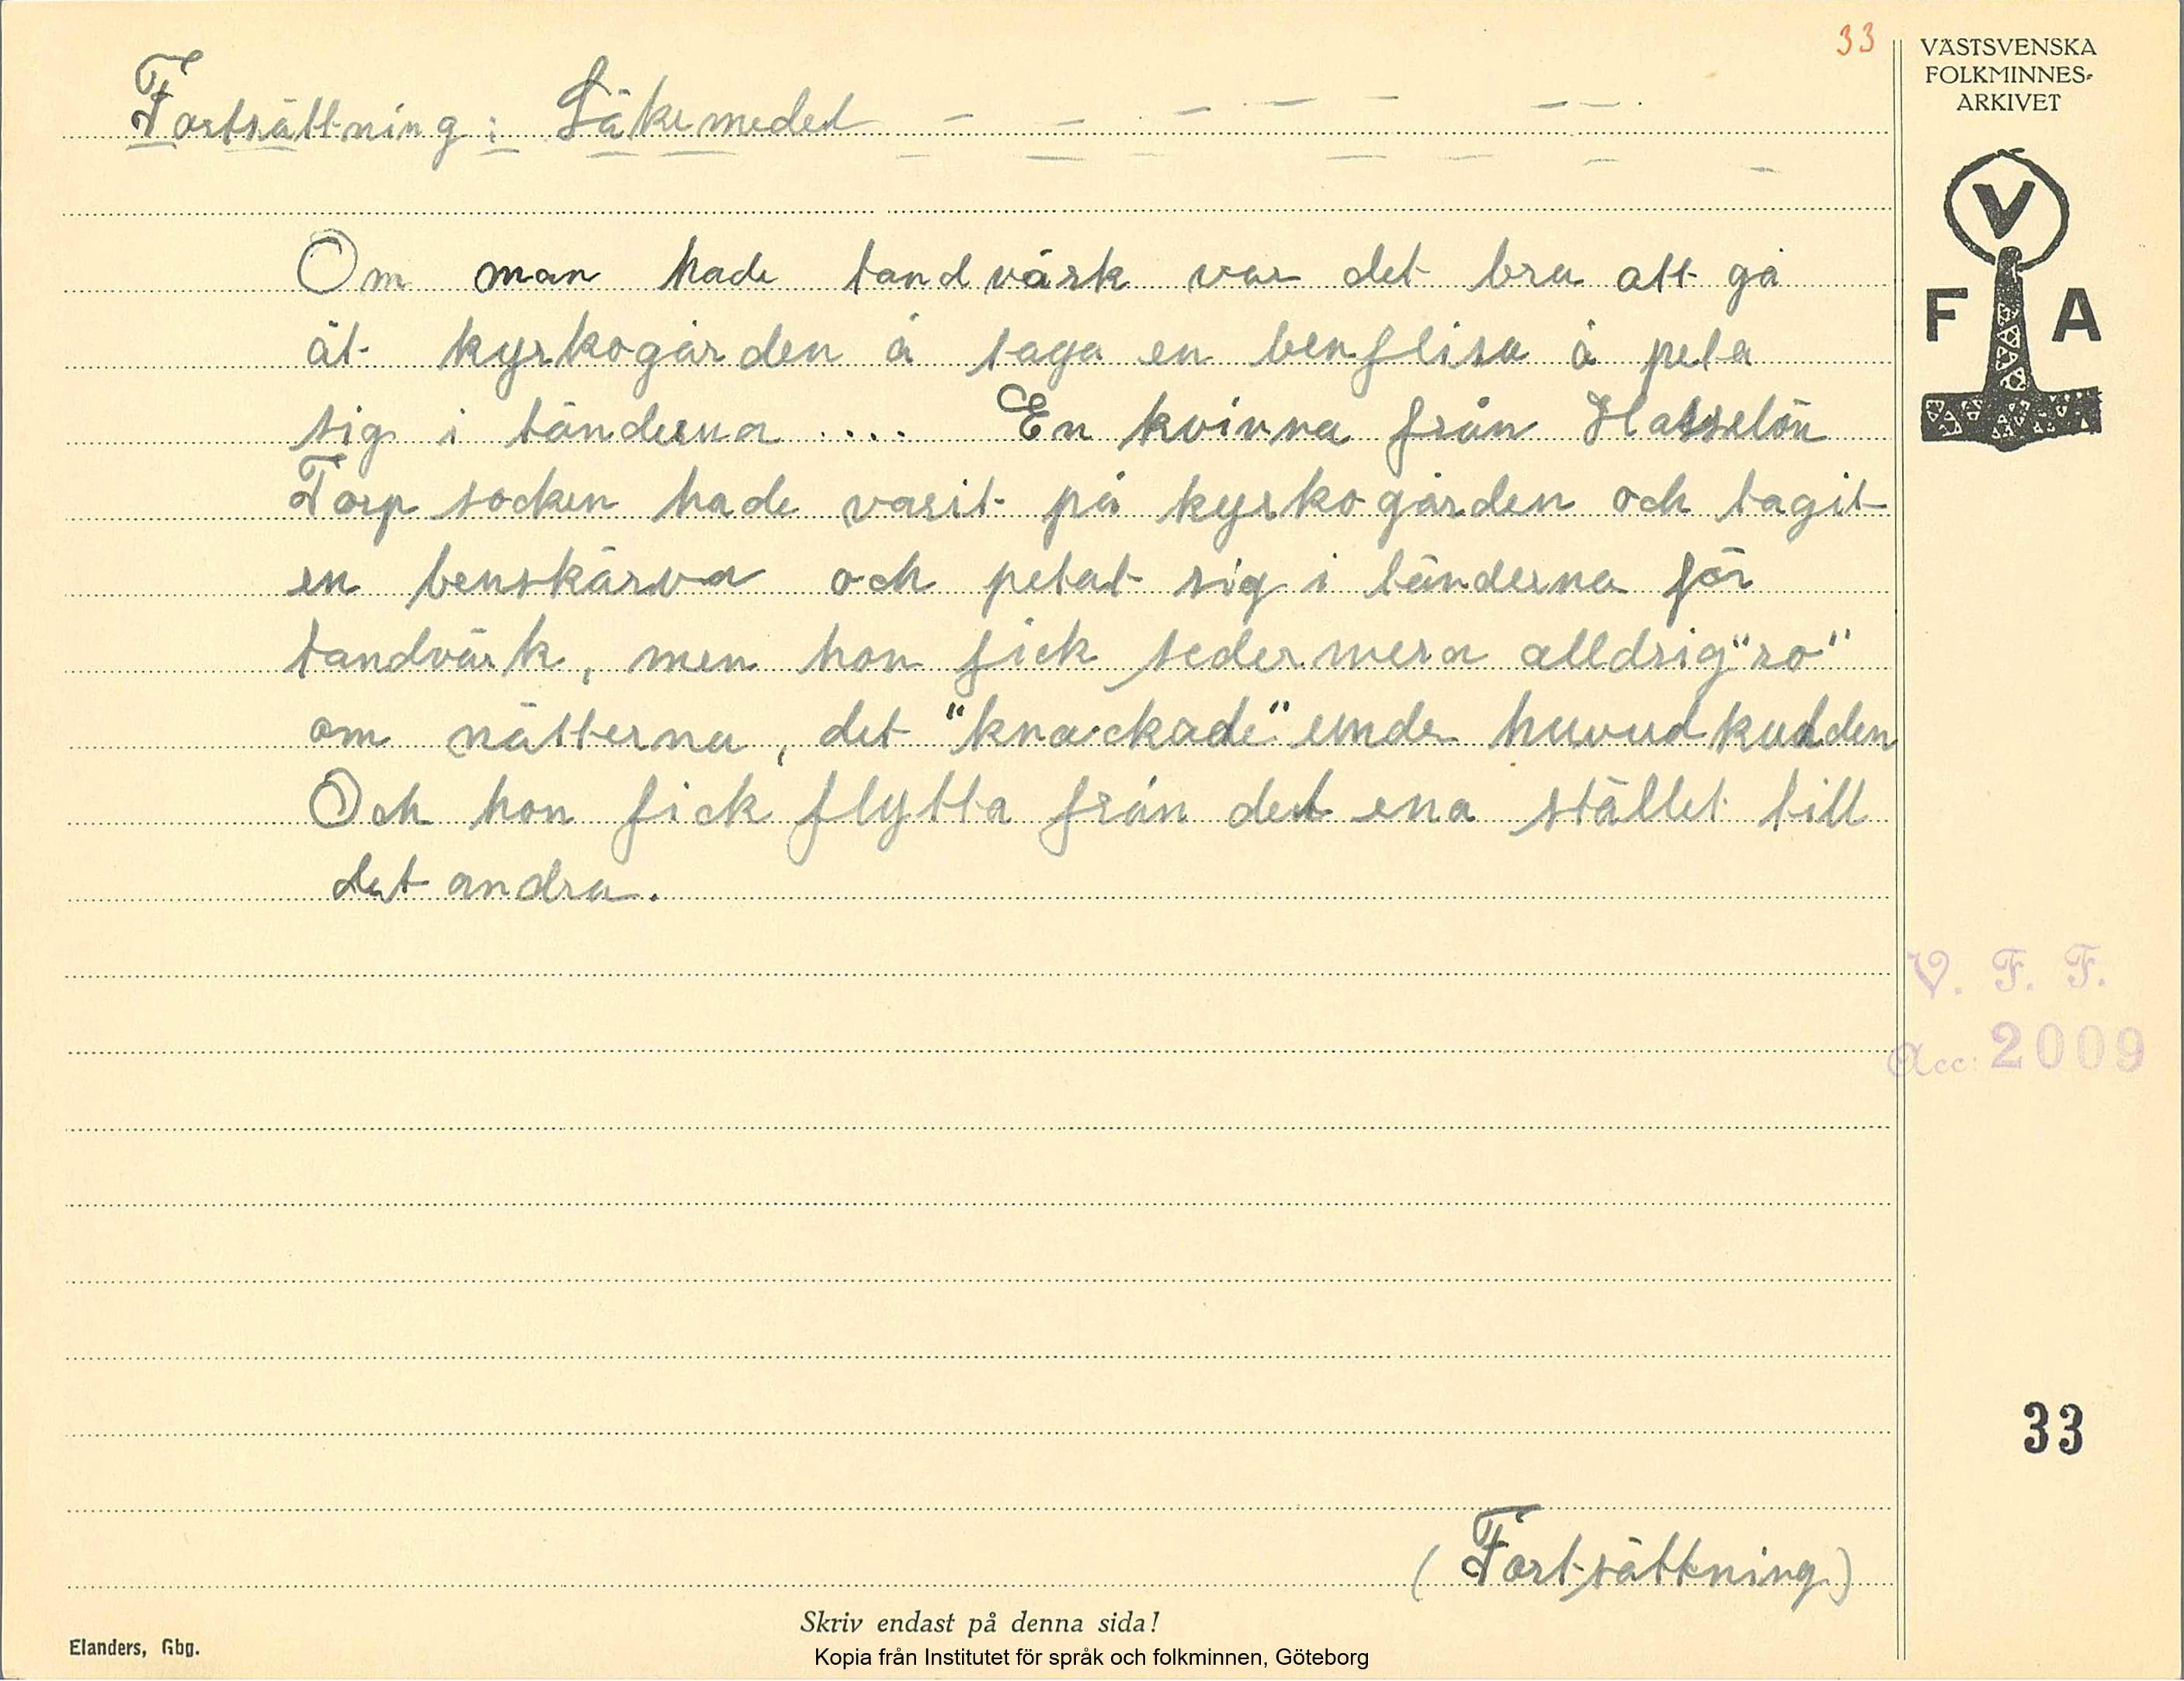 33
VÄSTSVENSKA
FOLKMINNES-
ARKIVET
Fortsättning: Läkemedel
V
F A
Om man hade tandvärk var det bra att gå
åt kyrkogården å taga en benflisa å peta
sig i tänderna .... En kvinna från Hasselön
Torp socken hade varit på kyrkogården och tagit
en benskärva och petat sig i tänderna för
tandvärk, men hon fick sedermera alldrig "ro"
om nätterna, det "knackade" under huvudkudden
Och hon fick flytta från det ena stället till
det andra.
V. F. F.
Acc: 2009
33
(Fortsättning)
Skriv endast på denna sida!
Elanders, Gbg.
Kopia från Institutet för språk och folkminnen, Göteborg